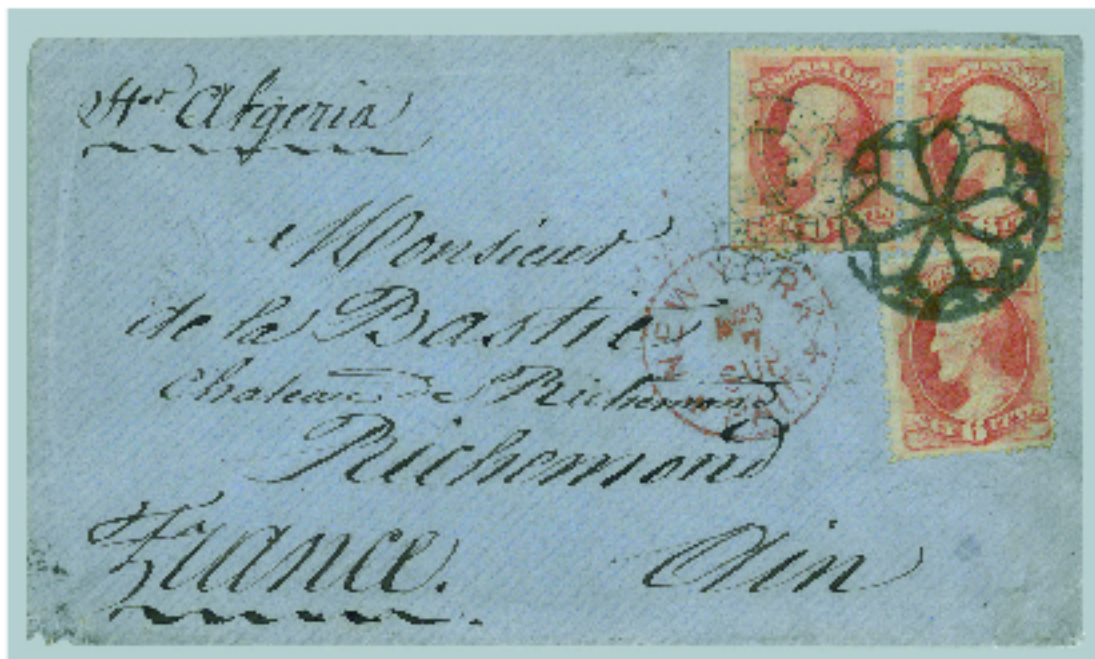 Str Algeria
Monsieur
de la Bastie
Chateau de Richemond
Richemond
France. Ain
NEW YORK